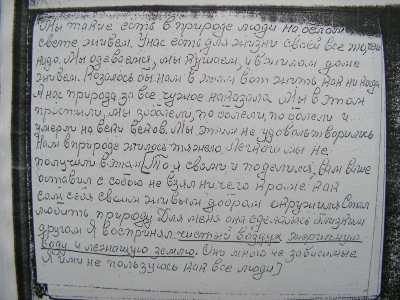 Мы такие есть в природе люди на белом
свете живем. У нас есть для жизни своей все что
надо. Мы одеваемся, мы кушаем, и в жилом доме
живем. Казалось бы нам в этом вот жить как никогда
А нас природа за все чужое наказала Мы в этом
простыли, мы заболели, поболели, поболели и
умерли на веки веков. Мы этим не удовлетворились
Нам в природе жилось тяжело. Легкого мы не
получили в этом То я с вами и поделился, вам выше
оставил с собою не взял ничего кроме как
сам себя своим живым добром окружил. Стал
любить природу Для меня она сделалась близким
другом Я воспринял чистый воздух энергичную
воду и лежащую землю. Они много че зависимые
Я ими не пользуюсь как все люди)